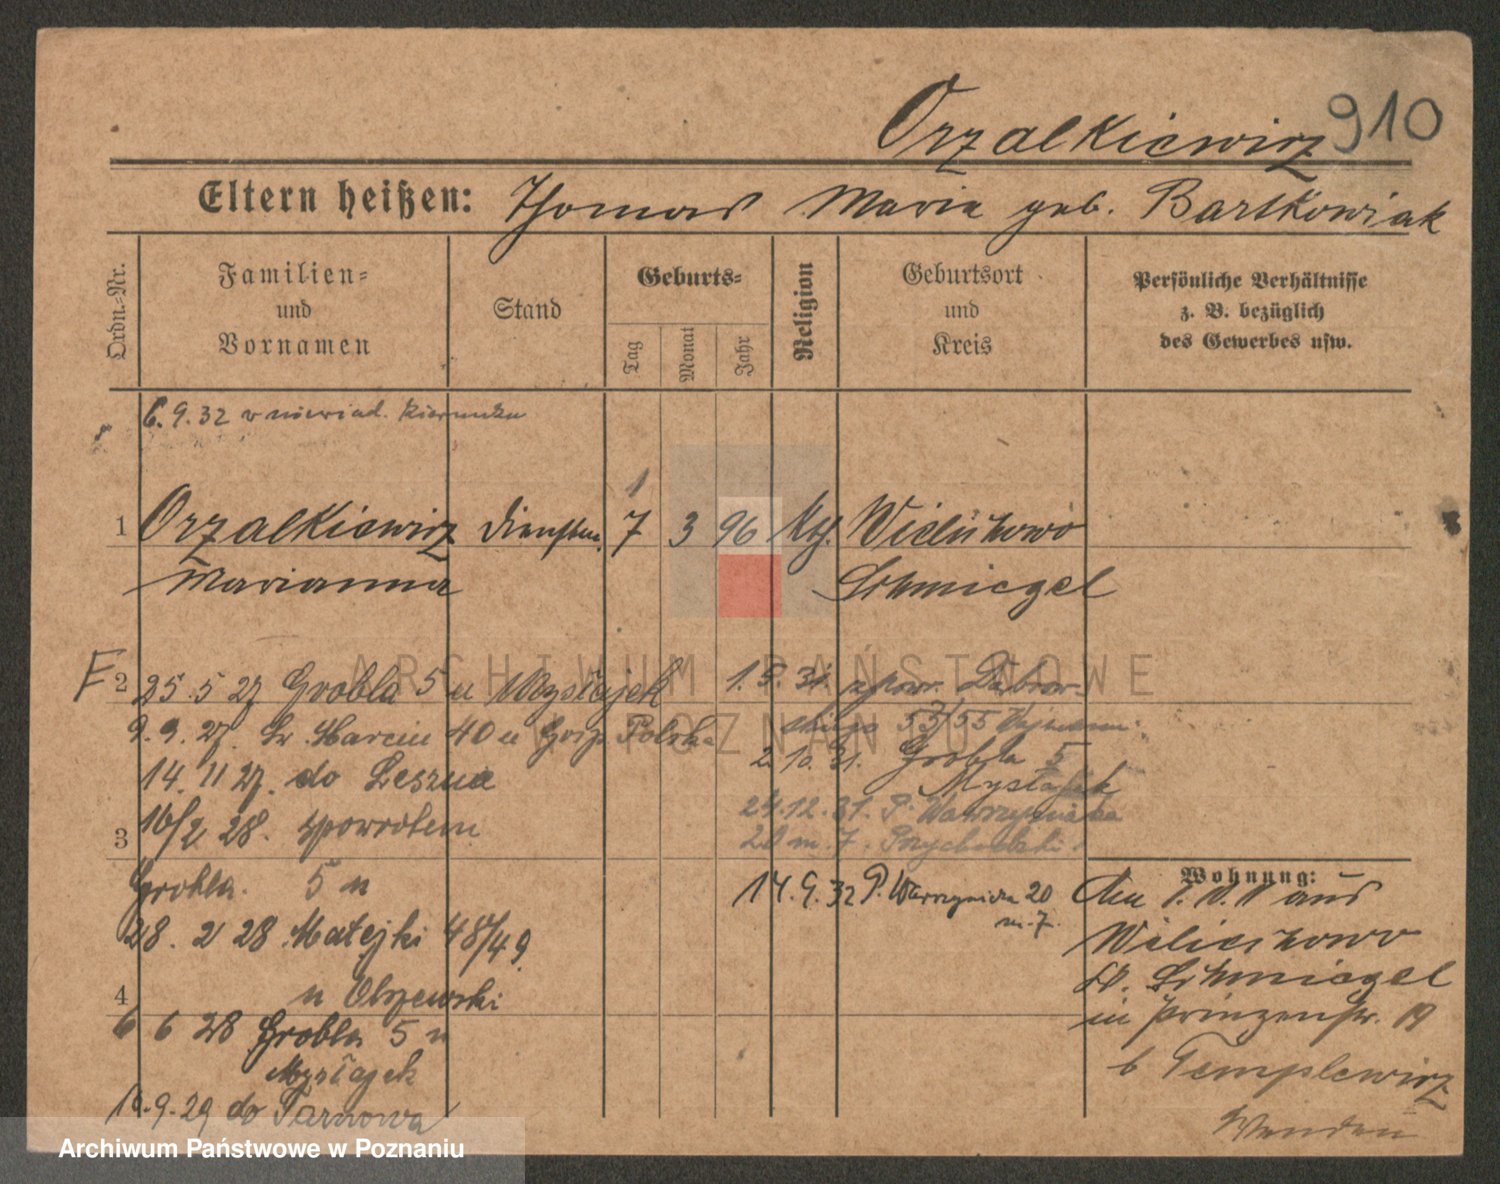 Orzalkiewicz 910
Eltern heißen: Thomas Maria geb. Bartkowiak
Ordn.-Nr.
Familien-
und
Vornamen
Stand
Geburts-
Tag
Monat
Jahr
Religion
Geburtsort
und
Kreis
Persönliche Verhältnisse
z. B. bezüglich
des Gewerbes usw.
6.9.32 w niewiad. kierunku
1
1 Orzalkiewicz 7 3 96 Kth. Wielichowo
Marianna Schmiegel
F 2 25.5 27 Grobla 5 u Mysłajek
9.9.27. Św. Marcin 40 u Polska
14.11 27. do Leszna
3 16/2 28. zpowrotem
Grobla. 5 u
28. 2 28 Matejki 48/49
4 u Olszewski
6 6 28 Grobla 5 u
Mysłajek
10.9.29 do Tarnowa
1.8.31 zpow. Dąbrow-
skiego 53/55
2.10.31. Grobla 5
Mysłajek
24.12.31. P. Wawrzyniaka
20 m. 7. Przychodzki
14.9.32 P. Wawrzyniaka 20
m. 7.
Wohnung:
aus
Wilichowo
Kr. Schmiegel
in Prinzenstr. 19
b Templewicz
ARCHIWUM PAŃSTWOWE
W POZNANIU
Archiwum Państwowe w Poznaniu